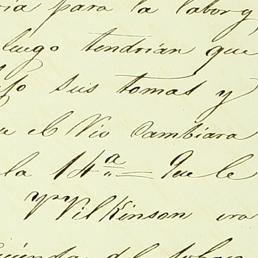 ria para la labor y
luego tendrian que
sus tomas y
e el Rio cambiara
la 14ª = Que le
Wilkinson era
del